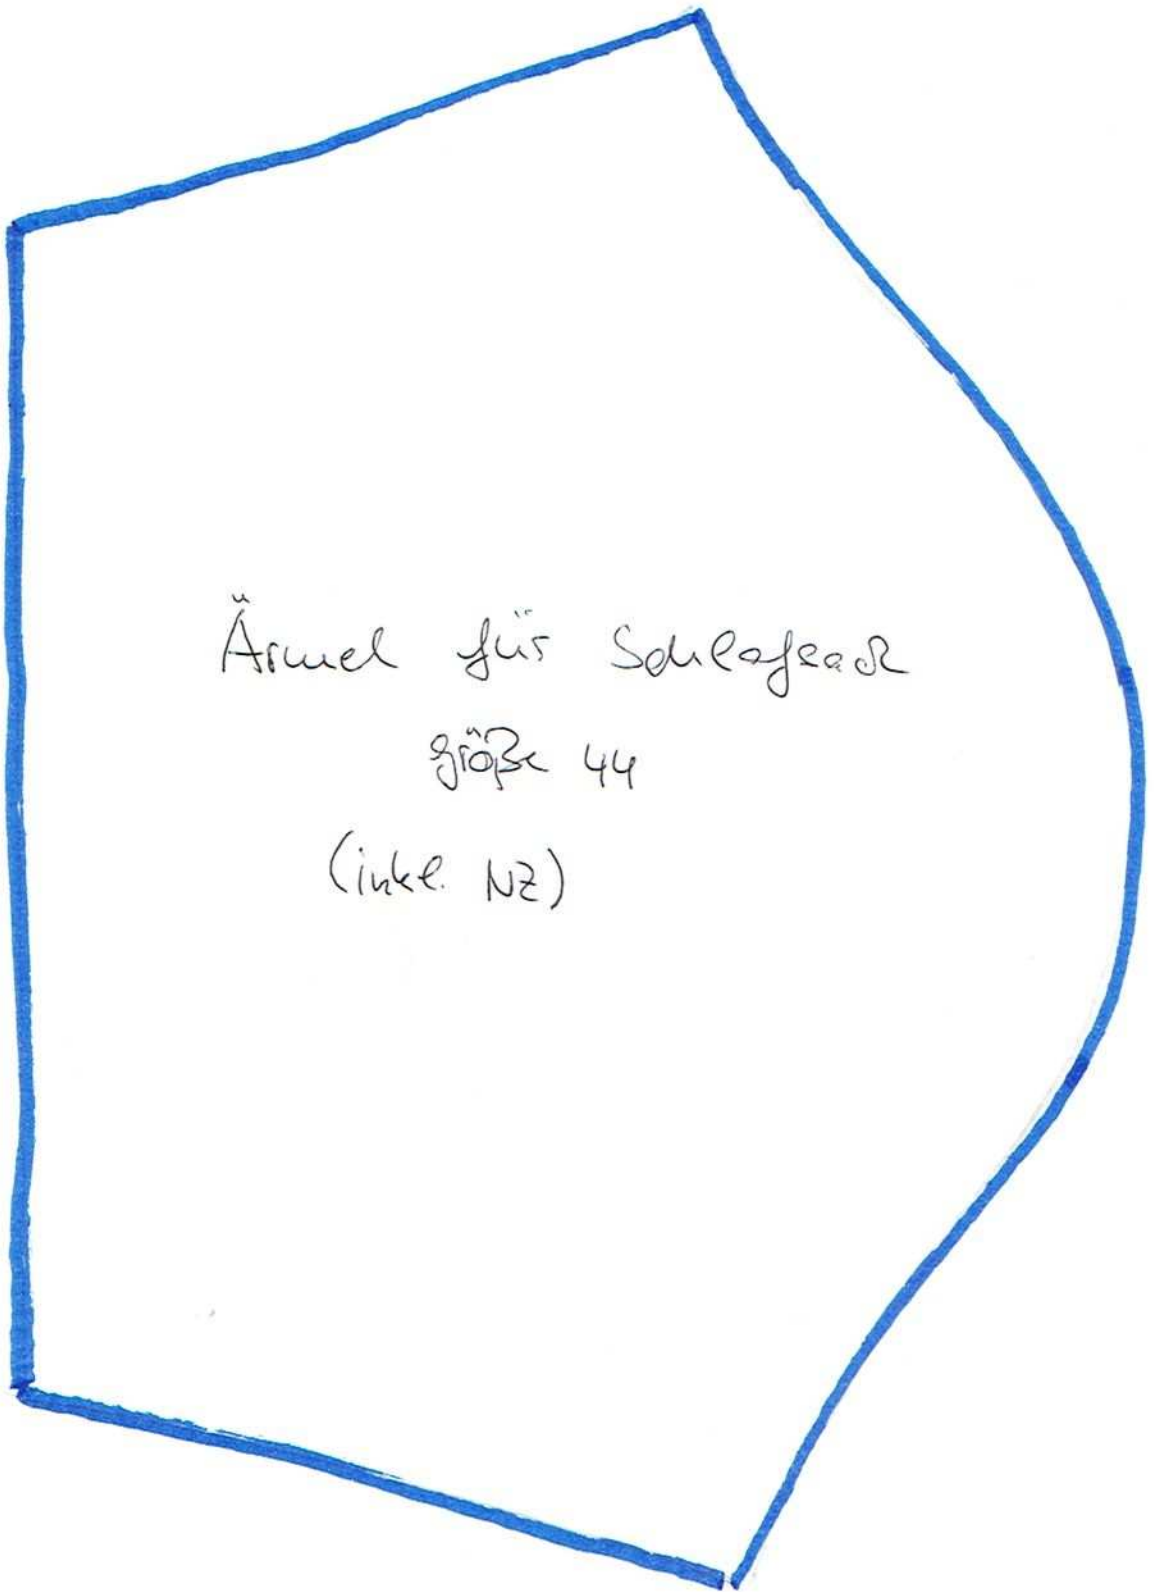 Ärmel für Schlafsack
Größe 44
(inkl. NZ)